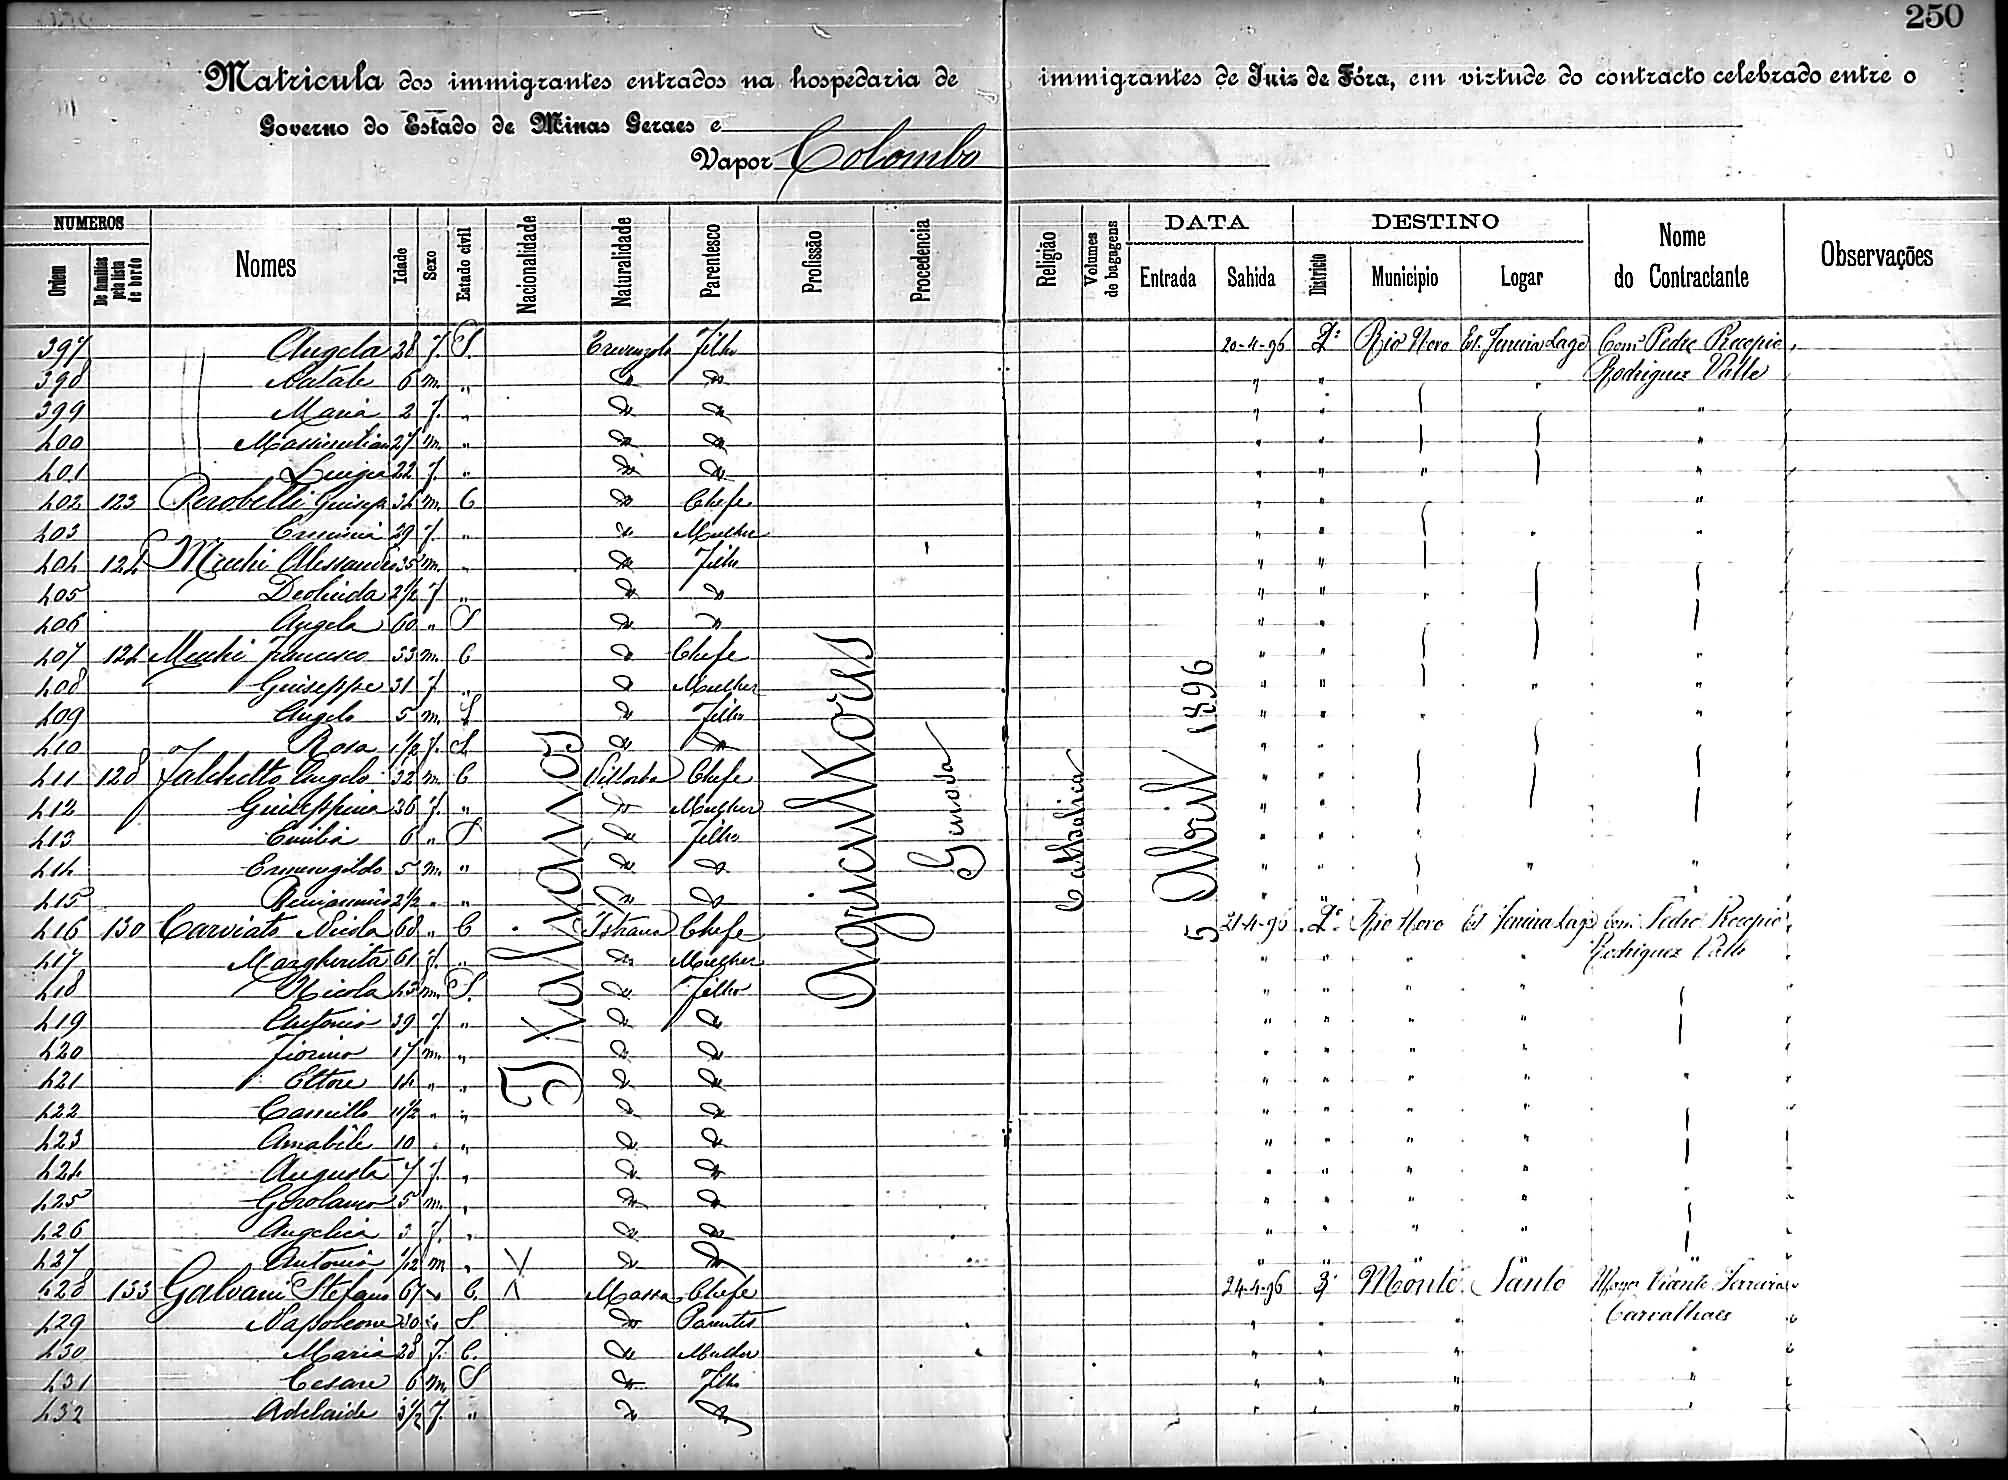 250
Matricula dos immigrantes entrados na hospedaria de immigrantes de Juiz de Fóra, em virtude do contracto celebrado entre o
Governo do Estado de Minas Geraes e
Vapor Colombo
NUMEROS DATA DESTINO
Ordem De familias pela lista de bordo Nomes Idade Sexo Estado civil Nacionalidade Naturalidade Parentesco Profissão Procedencia Religião Volumes de bagagens Entrada Sahida Districto Municipio Logar Nome do Contractante Observações
Italiannos
Agricultores
Genova
Catholica
5 Abril 1896
397 Angela 28 f. S. Filho 20-4-96 2º Rio Novo Est. Ferreira Lage Com Pedro Procopio
398 Natale 6 m. " Do Do " " Rodrigues Valle
399 Maria 2 f. " Do Do " "
400 27 m. " Do Do " "
401 Luigia 22 f. " Do Do " "
402 123 Perobelli Giusep 36 m. C Do Chefe " "
403 Erminia 29 f. " Do Mulher " "
404 124 Alessandro 35 m. " Do Filho " "
405 Deolinda 2 1/2 f " Do Do " "
406 Angela 60 " S Do Do " "
407 124 Francesco 33 m. C Do Chefe " "
408 Guiseppe 31 f " Do Mulher " "
409 Angelo 5 m. S Do Filho " "
410 Rosa 1 1/2 f. S. Do Do " "
411 128 Falchetto Angelo 32 m C Villorba Chefe " "
412 Guiseppina 36 f. " Do Mulher " "
413 Emilia 6 " S Do Filho " "
414 Ermenegildo 5 m. " Do Do " "
415 Beniamino 2 1/2 " " Do Do " "
416 130 Carviato Nicola 68 " C Istrana Chefe 21-4-96 2º Rio Novo Est Ferreira Lage Com. Pedro Procopio
417 Margherita 61 f. " Do Mulher " " Rodrigues Valle
418 Nicola 43 m. S. Do Filho " "
419 Antonia 39 f. " Do Do " "
420 Fiorino 17 m. " Do Do " "
421 Ettore 14 " " Do Do " "
422 Camillo 11 1/2 " " Do Do " "
423 Amabile 10 " " Do Do " "
424 Augusta 7 f. " Do Do " "
425 Gerolamo 5 m. " Do Do " "
426 Angelica 3 f. " Do Do " "
427 Antonia 1/12 m " Do Do " "
428 133 Galvani Stefano 67 " C. Massa Chefe 24-4-96 3º Monte Santo Major Vicente Ferreira
429 Napoleone 30 " S. Do Parente " " Carvalhaes
430 Maria 28 f. C. Do Mulher " "
431 Cesare 6 m. S Do Filho " "
432 Adelaide 3 1/2 f. " Do Do " "